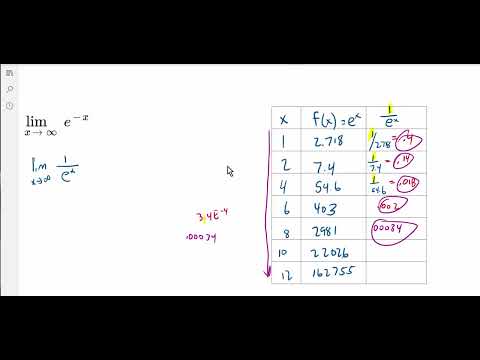 lim e^{-x}
x→∞
lim 1/e^x
x→∞
3.4E^{-4}
.00034
x f(x)=e^x 1/e^x
1 2.718 1/2.78 = .4
2 7.4 1/7.4 = .14
4 54.6 1/54.6 = .018
6 403 .002
8 2981 .00034
10 22026
12 162755